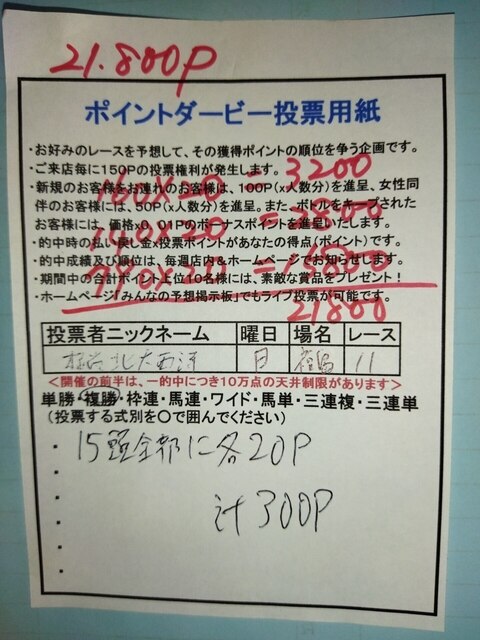 21.800P
ポイントダービー投票用紙
・お好みのレースを予想して、その獲得ポイントの順位を争う企画です。
・ご来店毎に150Pの投票権利が発生します。
・新規のお客様をお連れのお客様は、100P(x人数分)を進呈、女性同
伴のお客様には、50P(x人数分)を進呈。また、ボトルをキープされた
お客様には、価格x0.01Pのボーナスポイントを進呈いたします。
・的中時の払い戻し金x投票ポイントがあなたの得点(ポイント)です。
・的中成績及び順位は、毎週店内&ホームページでお知らせします。
・期間中の合計ポイント上位10名様には、素敵な賞品をプレゼント!
・ホームページ「みんなの予想掲示板」でもライブ投票が可能です。
160x20 = 3200
x20 = 
= 
21800
投票者ニックネーム 曜日 場名 レース
北大西洋 日 福島 11
<開催の前半は、一的中につき10万点の天井制限があります>
単勝・複勝・枠連・馬連・ワイド・馬単・三連複・三連単
(投票する式別を○で囲んでください)
・15頭全部に各20P
計300P